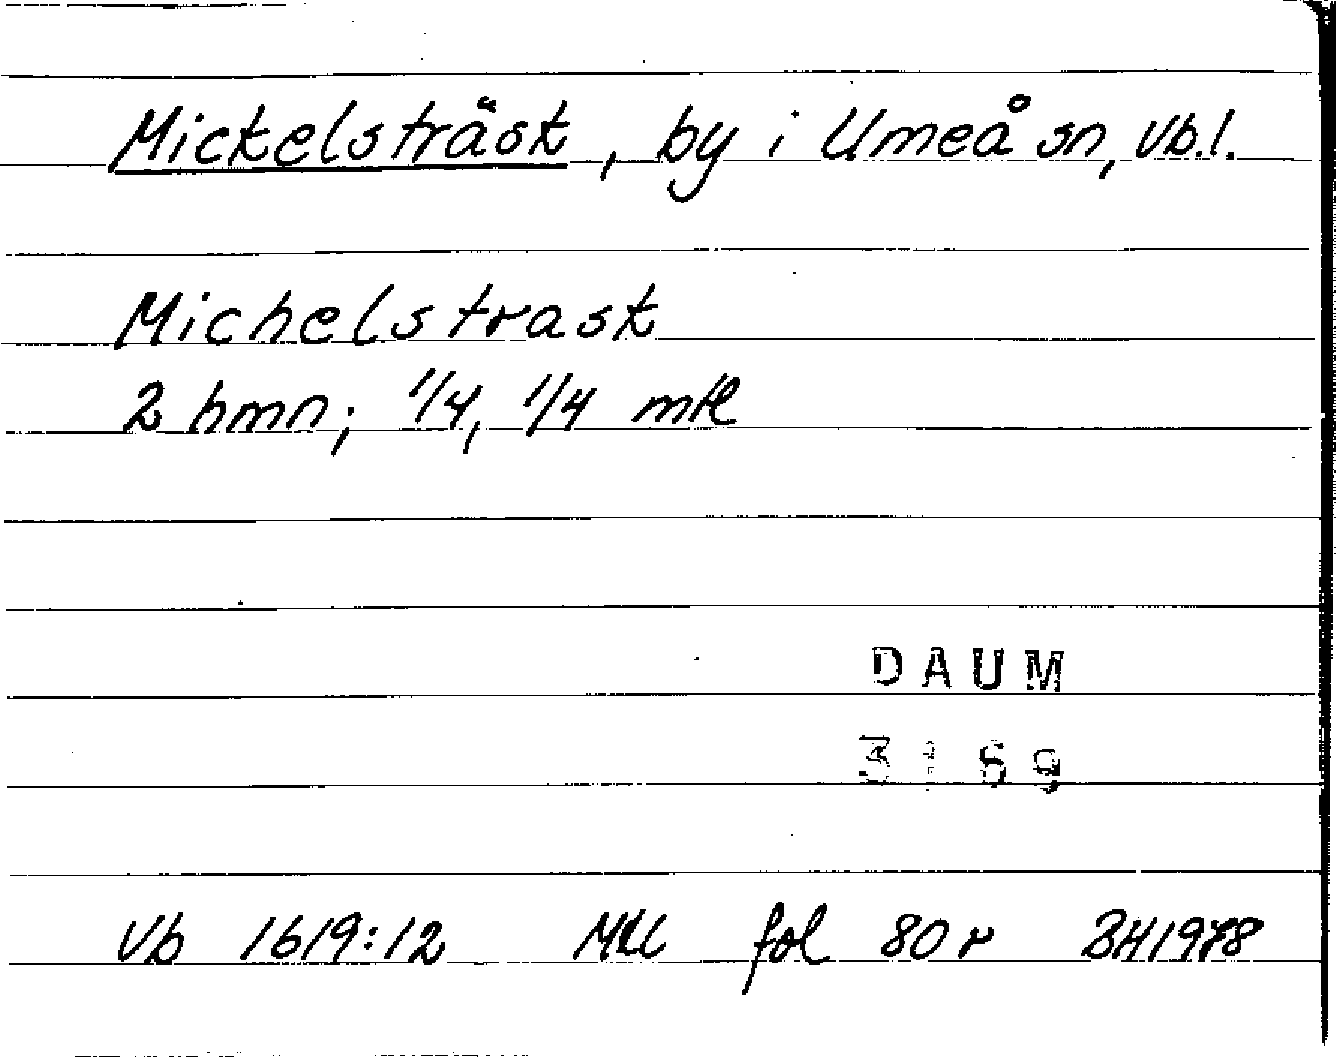 Mickelsträsk, by i Umeå sn, Vb.l.
Michelstrask
2 hmn; 1/4, 1/4 mtl
DAUM
3169
Vb 1619:12 Mtl fol 80 r BH1978